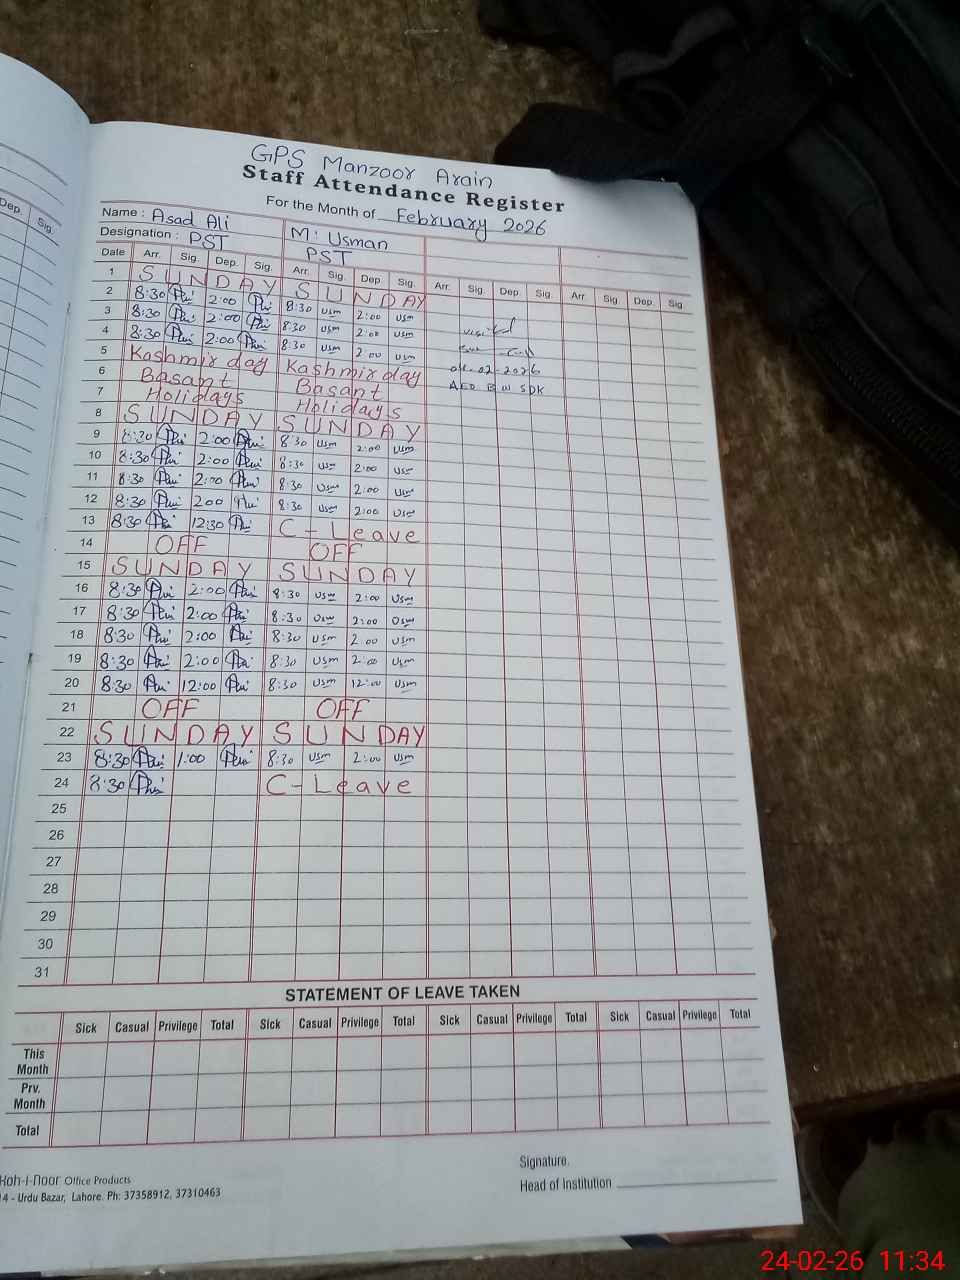 GPS Manzoor Arain
Staff Attendance Register
For the Month of February 2026
Name : Asad Ali M: Usman
Designation : PST PST
Date Arr. Sig. Dep. Sig. Arr. Sig. Dep. Sig. Arr. Sig. Dep. Sig. Arr. Sig. Dep. Sig.
1 SUNDAY SUNDAY
2 8:30 2:00 8:30 usm 2:00 usm
3 8:30 2:00 8:30 usm 2:00 usm visited
4 8:30 2:00 8:30 usm 2:00 usm
5 Kashmir day Kashmir day 04-02-2026
6 Basant Basant AEO B W SDK
7 Holidays Holidays
8 SUNDAY SUNDAY
9 8:30 2:00 8:30 usm 2:00 usm
10 8:30 2:00 8:30 usm 2:00 usm
11 8:30 2:00 8:30 usm 2:00 usm
12 8:30 200 8:30 usm 2:00 usm
13 8:30 12:30 C-Leave
14 OFF OFF
15 SUNDAY SUNDAY
16 8:30 2:00 8:30 usm 2:00 usm
17 8:30 2:00 8:30 usm 2:00 usm
18 8:30 2:00 8:30 usm 2:00 usm
19 8:30 2:00 8:30 usm 2:00 usm
20 8:30 12:00 8:30 usm 12:00 usm
21 OFF OFF
22 SUNDAY SUNDAY
23 8:30 1:00 8:30 usm 2:00 usm
24 8:30 C-Leave
25
26
27
28
29
30
31
STATEMENT OF LEAVE TAKEN
Sick Casual Privilege Total Sick Casual Privilege Total Sick Casual Privilege Total Sick Casual Privilege Total
This Month
Prv. Month
Total
Signature.
Head of Institution
Koh-i-noor Office Products
14 - Urdu Bazar, Lahore. Ph: 37358912, 37310463
Dep. Sig.
24-02-26 11:34